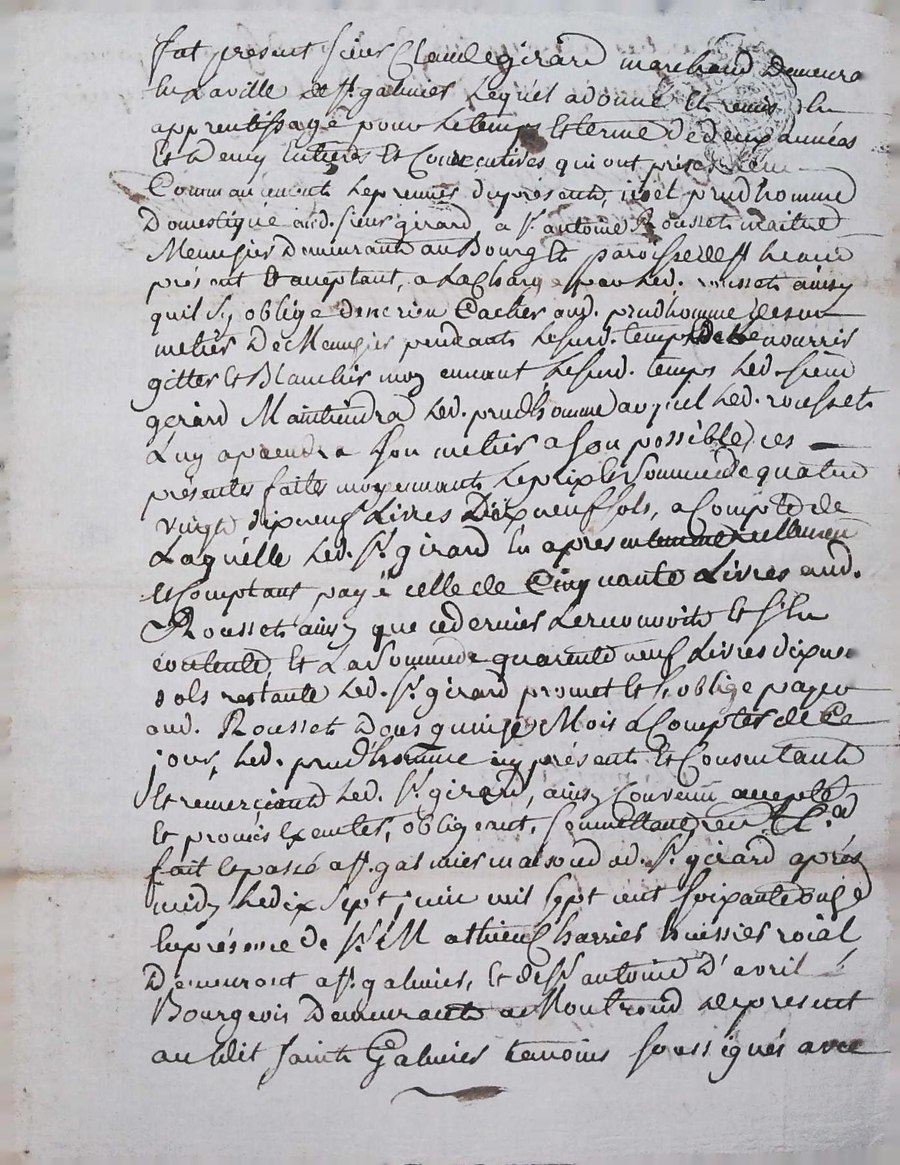 fut present sieur Claude girard marchand Demeurant
En Laville de st. galmier Lequel adonné Et remis En
apprentissage pour Le temps Et terme de deux années
Et Demy Entieres Et Consecutives qui ont pris
Commancement Le premier du présent, noel prudhomme
Domestique aud. sieur girard, a sr. antoine Rousset maitre
Menusier Demeurant au Bourg Et paroisse de st.
présent Et aceptant, a La Charge par Led. rousset ainsy
quil sy oblige de ne rien Cacher aud. prudhomme de son
metier De Menusier pendant Lesusd. temps De Le nourrir
gitter Et Blanchir moyennant Lesusd. temps Led. sieur
gerard Maintiendra Led. prudhomme auquel Led. rousset
Luy aprendra son metier a son possible, ces
présentes faites moyennant Le prix Et Somme de quatre
vingt dixneuf Livres Dixneuf sols, a Compte de
Laquelle Led. sr. girard En a présentement reellement
Et Comptant payé celle de Cinquante Livres aud.
Rousset ainsy que ce dernier Le reconnoit Et s'En
contente, Et La Somme de quarente neuf Livres dixneuf
sols restante Led. sr. girard promet Et s'oblige payer
aud. Rousset Dans quinze Mois a Compter de Ce
jour, Led. prudhomme icy présent Et Consentant
Et remerciant Led. sr. girard, ainsy Convenu accepté
Et promis Executer, obligeant, soumettant, ren.t &c.a
fait Et passé a st. galmier maison dud. sr. girard après
midy Le dix sept juin mil sept cent soixante onze
En présence de sr. Mathieu Charrier huissier roial
Demeurant a st. galmier, Et de sr. antoine D'avril
Bourgeois Demeurant a Montrond de présent
audit saint Galmier temoins soussignés avec